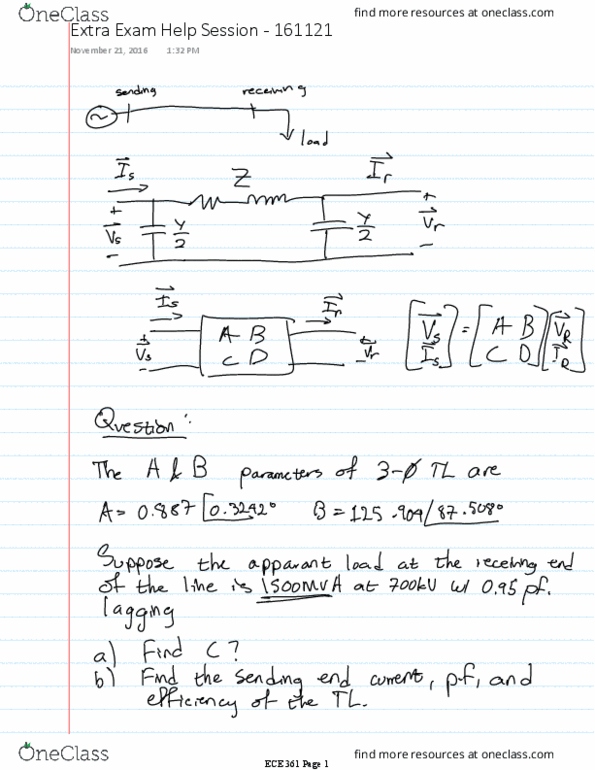 OneClass
find more resources at oneclass.com
Extra Exam Help Session - 161121
November 21, 2016 1:32 PM
sending receiving
~
load
Is Z Ir
+ +
Vs Y/2 Y/2 Vr
- -
Is Ir
+ A B + [Vs] = [A B] [VR]
Vs C D Vr [Is] [C D] [IR]
- -
Question:
The A & B parameters of 3-ϕ TL are
A = 0.887 ∠0.3292° B = 125.909 ∠87.508°
Suppose the apparant load at the receiving end
of the line is 1500MVA at 700kV w/ 0.95 pf.
lagging
a) Find C?
b) Find the sending end current, pf, and
efficiency of the TL.
OneClass
ECE361 Page 1
find more resources at oneclass.com